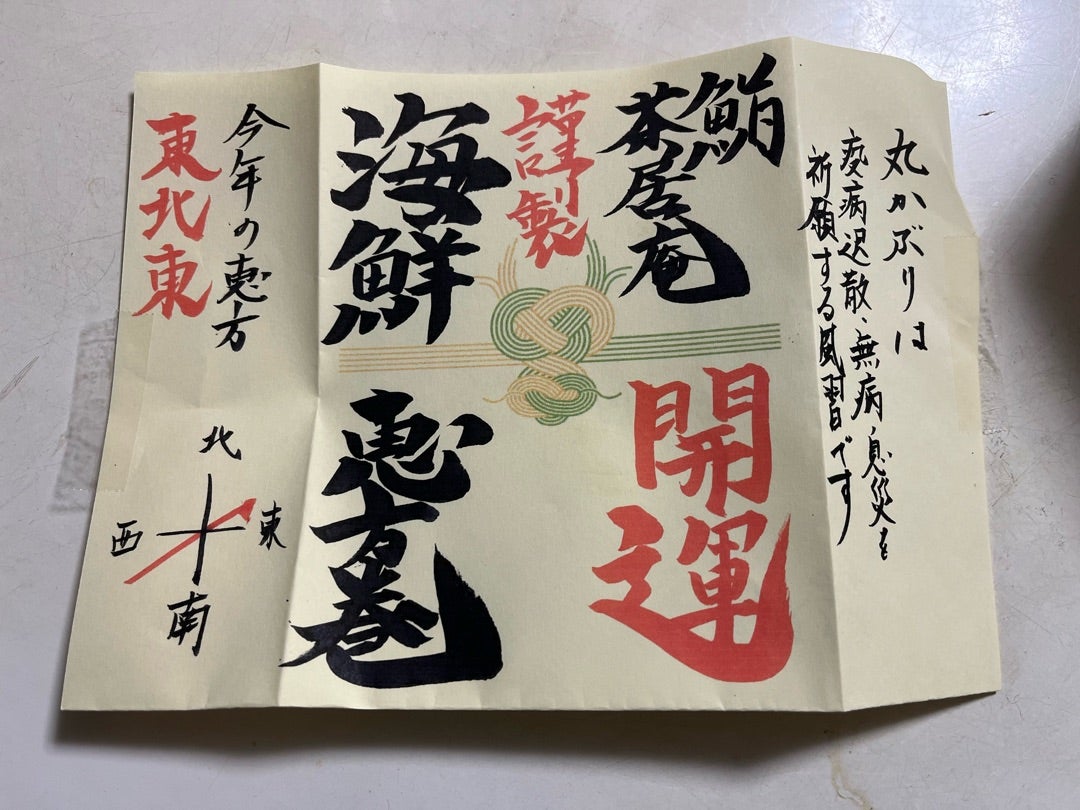 丸かぶりは
疫病退散、無病息災を
祈願する風習です
鮨
茶居庵
謹製
開運
海鮮
恵方巻
今年の恵方
東北東
北
東
西
南